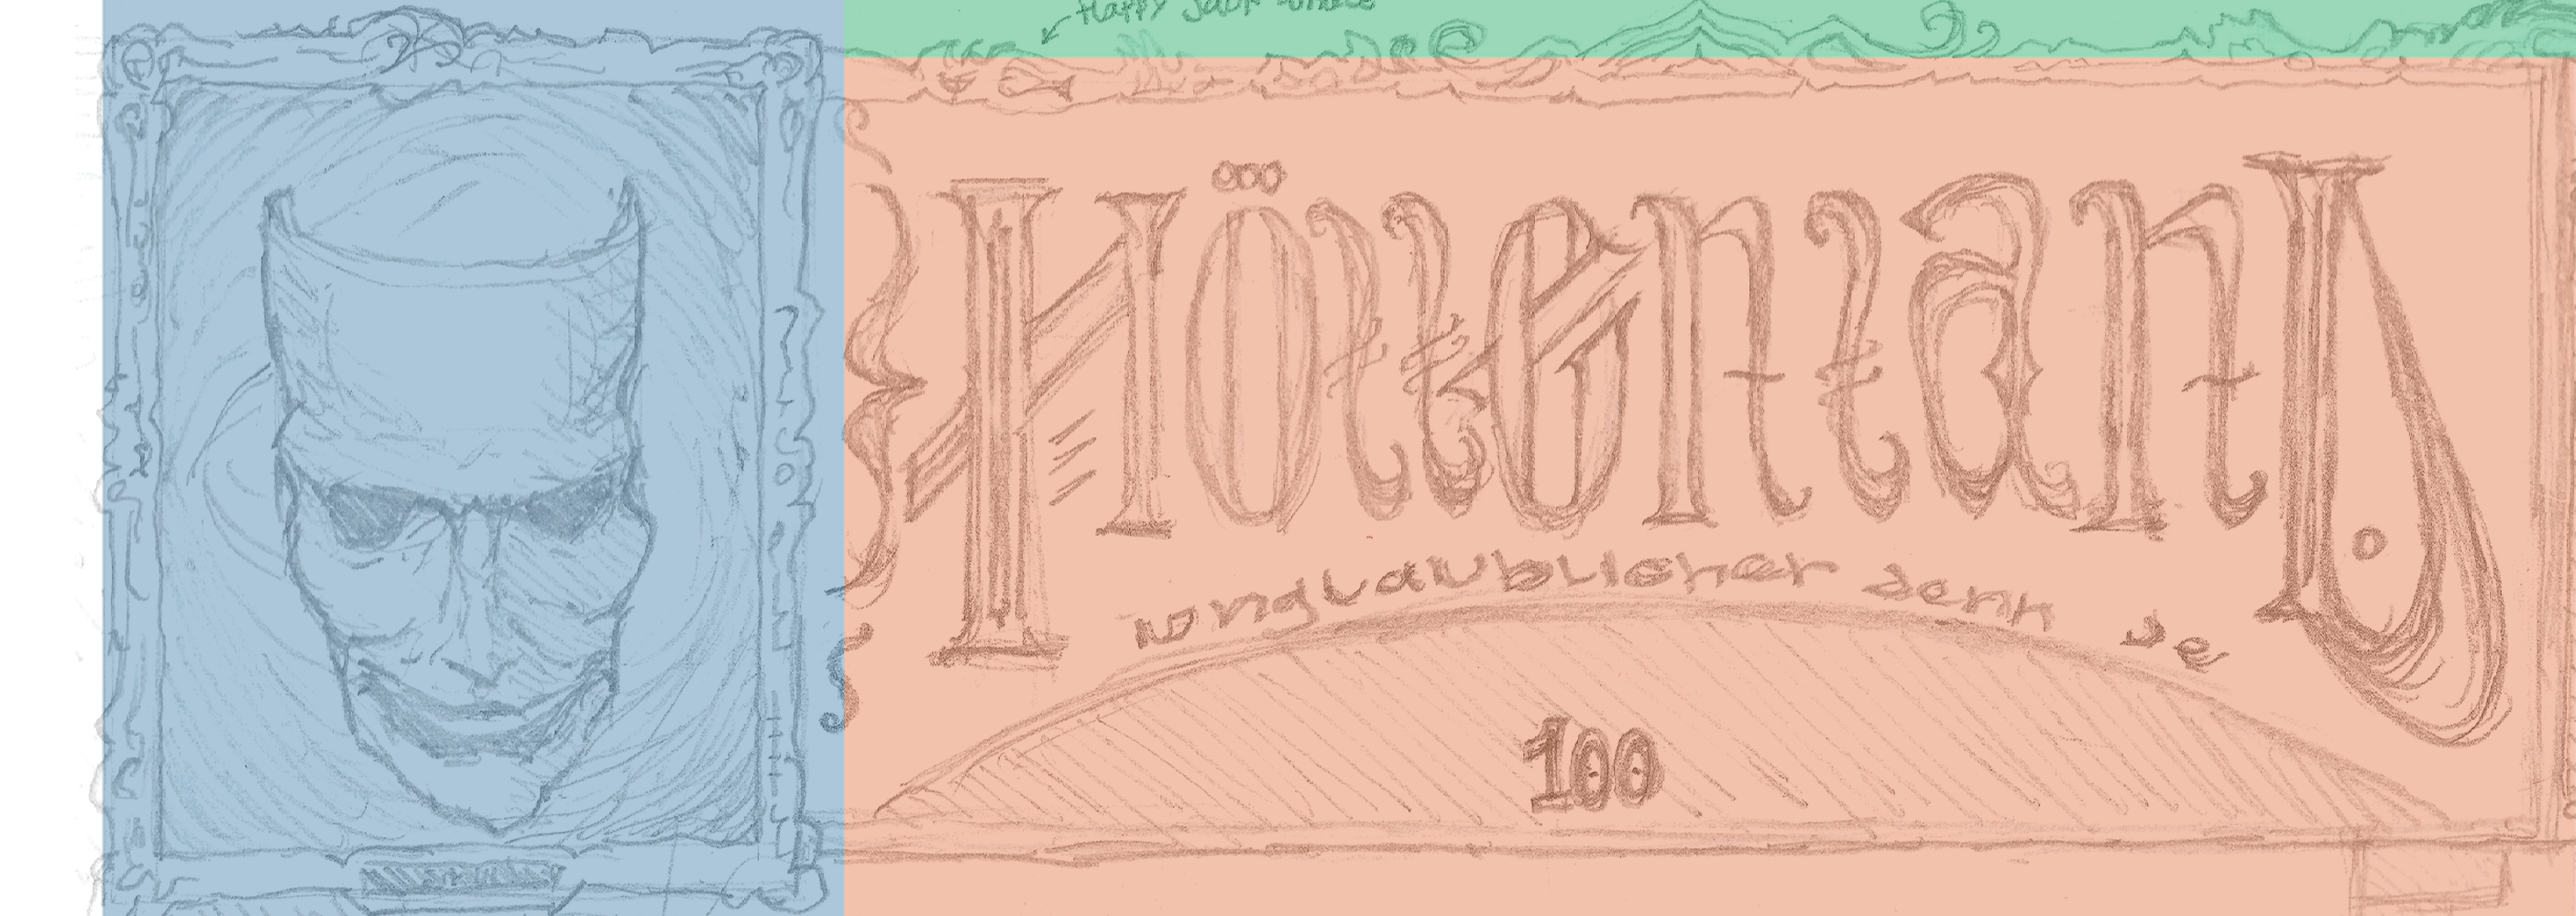 Happy Jack
Höllenland
unglaublicher denn je
100